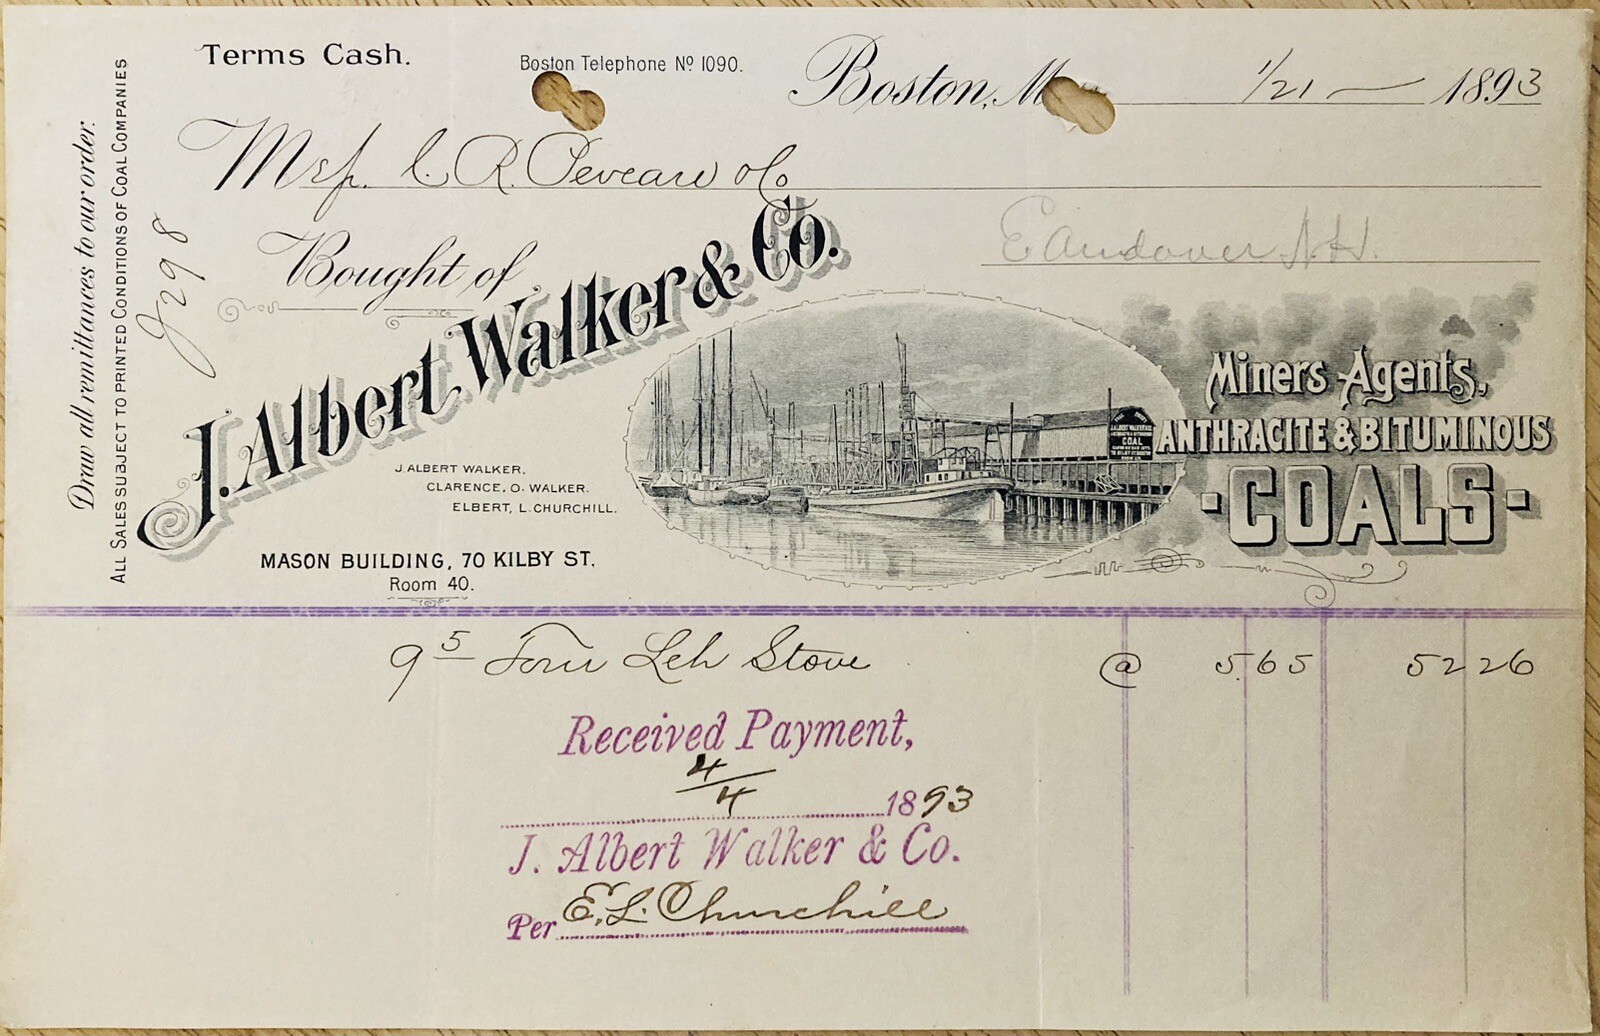 Terms Cash.
Boston Telephone Nº 1090.
Boston, M 1/21 — 1893
Draw all remittances to our order.
ALL SALES SUBJECT TO PRINTED CONDITIONS OF COAL COMPANIES
J298
C. R. Peveare & Co
E Andover N.H.
Bought of
J. Albert Walker & Co.
J. ALBERT WALKER.
CLARENCE. O. WALKER.
ELBERT, L. CHURCHILL.
MASON BUILDING, 70 KILBY ST.
Room 40.
J. ALBERT WALKER & CO.
COAL
Miners Agents,
ANTHRACITE & BITUMINOUS
-COALS-
9 5 Tons Leh Stove @ 5.65 52 26
Received Payment,
4/4 1893
J. Albert Walker & Co.
Per E. L. Churchill